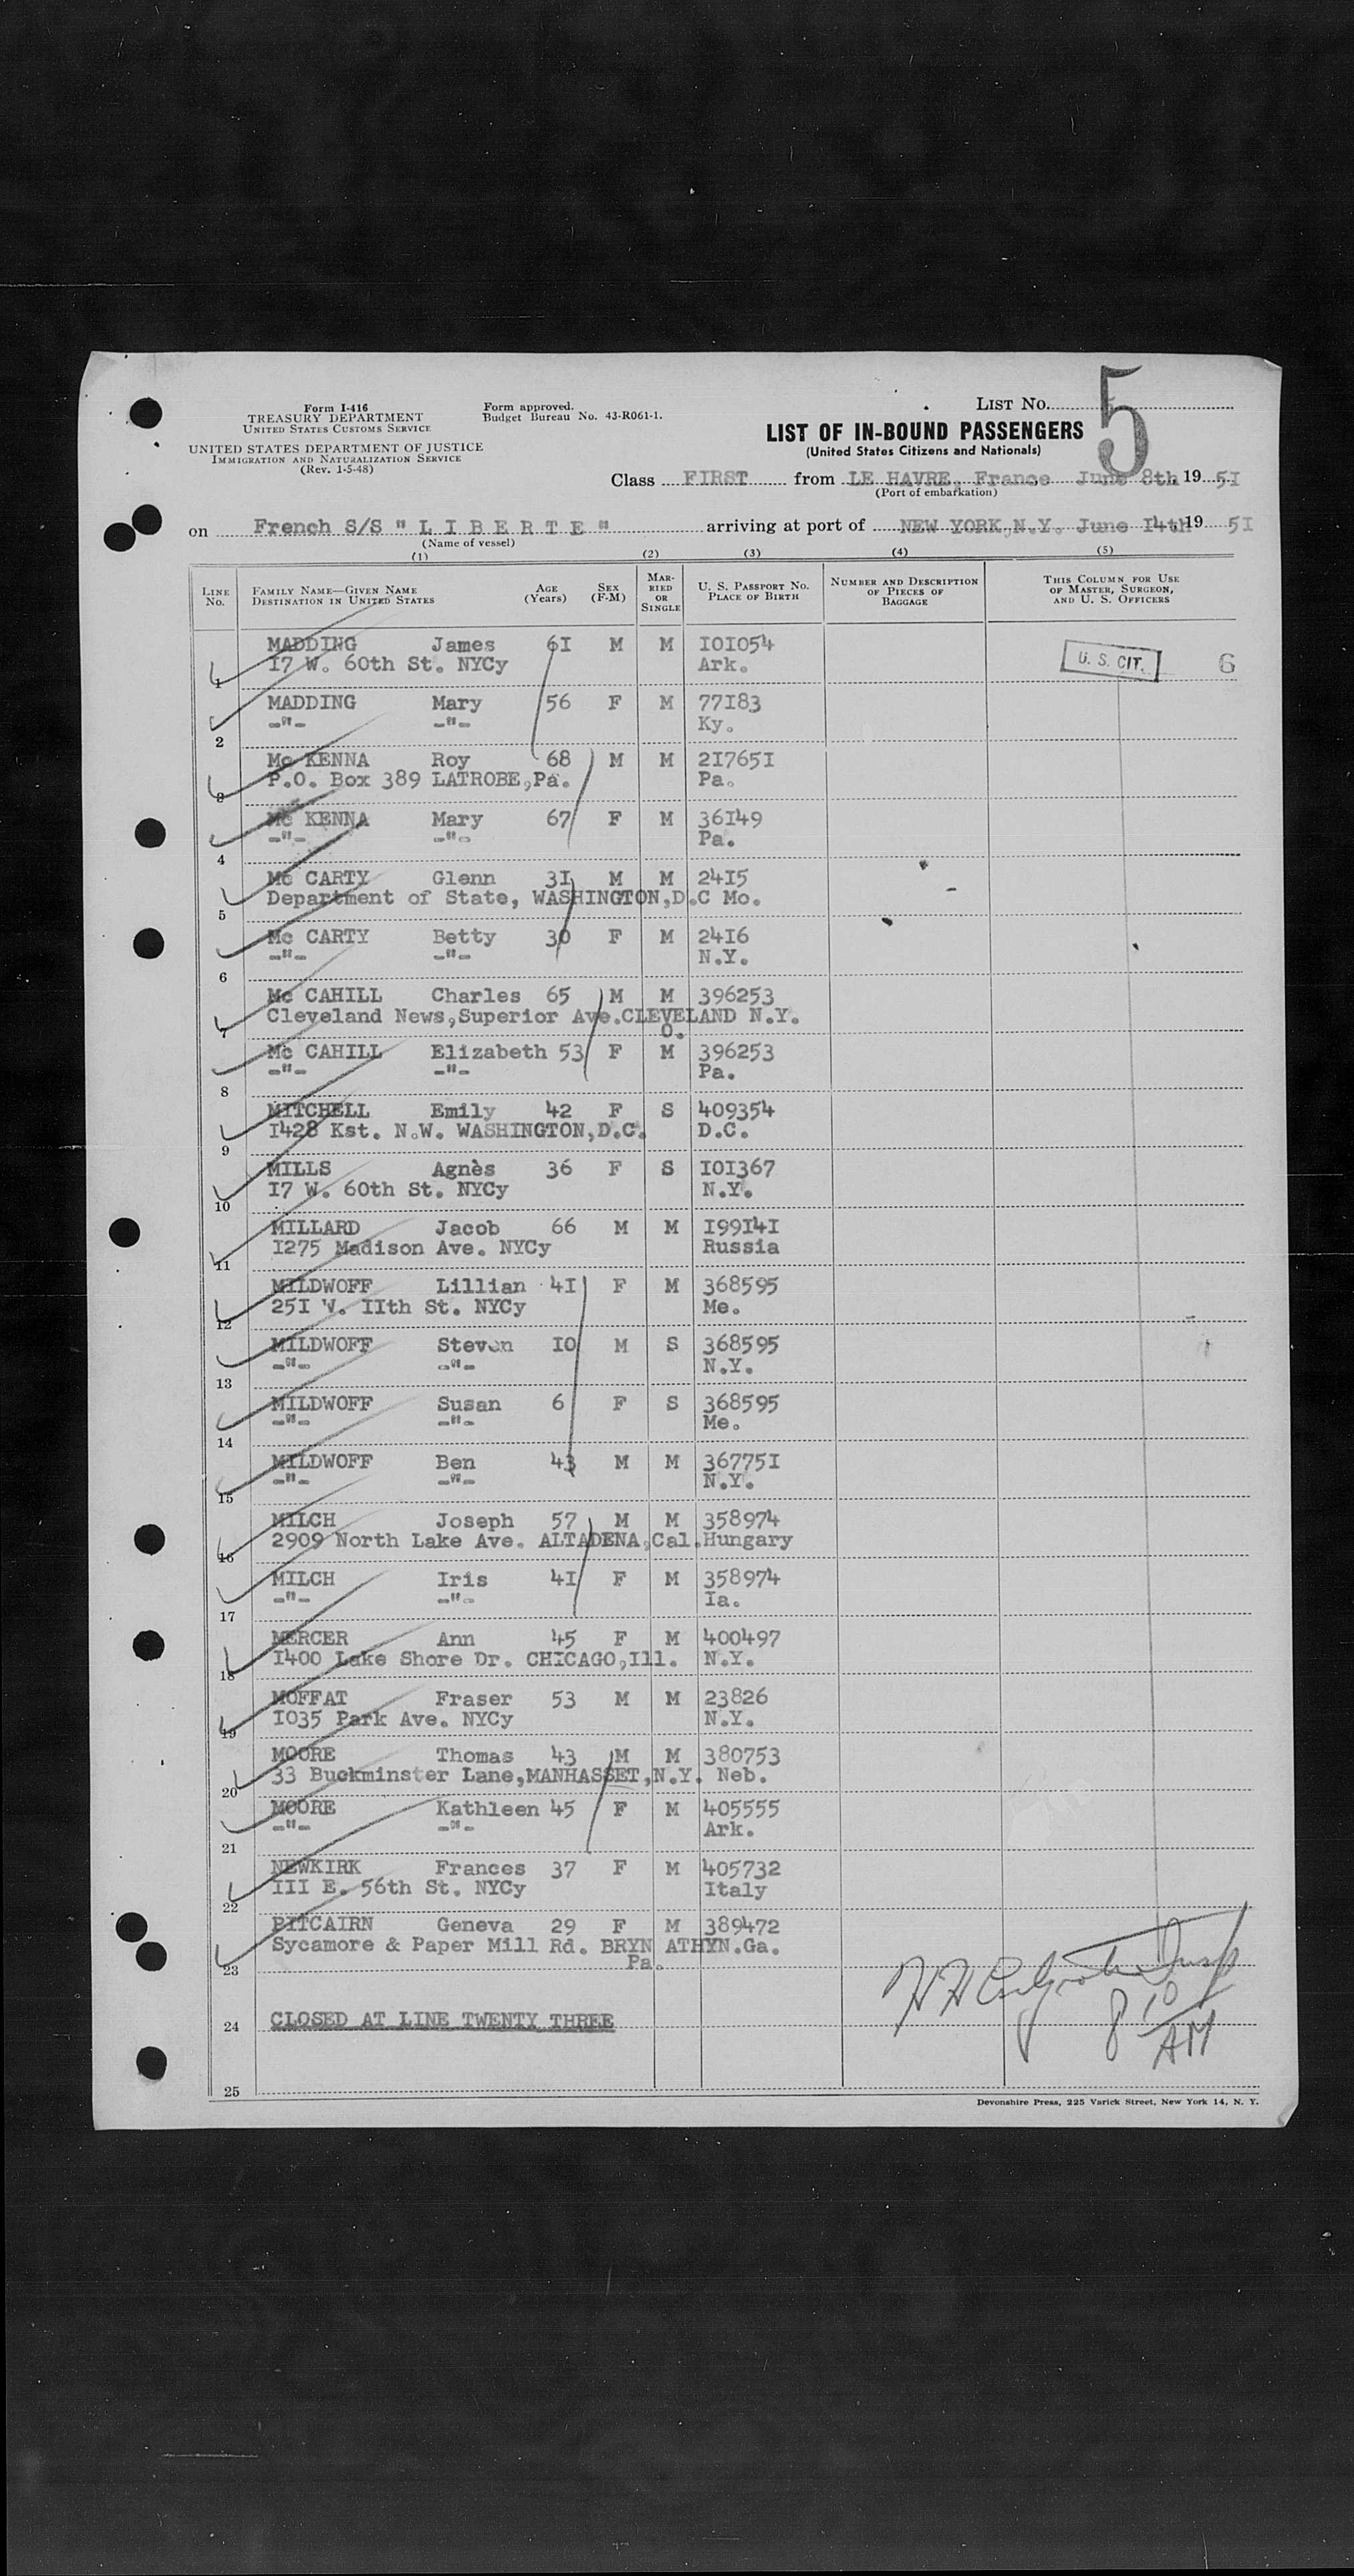 Form I-416
TREASURY DEPARTMENT
UNITED STATES CUSTOMS SERVICE
UNITED STATES DEPARTMENT OF JUSTICE
IMMIGRATION AND NATURALIZATION SERVICE
(Rev. 1-5-48)
Form approved.
Budget Bureau No. 43-R061-1.
LIST No. 5
LIST OF IN-BOUND PASSENGERS
(United States Citizens and Nationals)
Class FIRST from LE HAVRE, France June 8th, 19 51
(Port of embarkation)
on French S/S "LIBERTE" arriving at port of NEW YORK,N.Y. June 14th 19 51
(Name of vessel)
(1) (2) (3) (4) (5)
LINE No. FAMILY NAME—GIVEN NAME DESTINATION IN UNITED STATES AGE (Years) SEX (F-M) MARRIED OR SINGLE U. S. PASSPORT NO. PLACE OF BIRTH NUMBER AND DESCRIPTION OF PIECES OF BAGGAGE THIS COLUMN FOR USE OF MASTER, SURGEON, AND U. S. OFFICERS
MADDING James 61 M M 101054
1 17 W. 60th St. NYCy Ark. U. S. CIT. 6
MADDING Mary 56 F M 77183
2 -"- -"- Ky.
Mc KENNA Roy 68 M M 217651
3 P.O. Box 389 LATROBE,Pa. Pa.
Mc KENNA Mary 67 F M 36149
4 -"- -"- Pa.
Mc CARTY Glenn 31 M M 2415
5 Department of State, WASHINGTON,D.C Mo.
Mc CARTY Betty 30 F M 2416
6 -"- -"- N.Y.
Mc CAHILL Charles 65 M M 396253
7 Cleveland News,Superior Ave.CLEVELAND N.Y.
O.
Mc CAHILL Elizabeth 53 F M 396253
8 -"- -"- Pa.
MITCHELL Emily 42 F S 409354
9 1428 Kst. N.W. WASHINGTON,D.C. D.C.
MILLS Agnès 36 F S 101367
10 17 W. 60th St. NYCy N.Y.
MILLARD Jacob 66 M M 199141
11 1275 Madison Ave. NYCy Russia
MILDWOFF Lillian 41 F M 368595
12 251 W. 11th St. NYCy Me.
MILDWOFF Steven 10 M S 368595
13 -"- -"- N.Y.
MILDWOFF Susan 6 F S 368595
14 -"- -"- Me.
MILDWOFF Ben 43 M M 367751
15 -"- -"- N.Y.
MILCH Joseph 57 M M 358974
16 2909 North Lake Ave. ALTADENA,Cal.Hungary
MILCH Iris 41 F M 358974
17 -"- -"- Ia.
MERCER Ann 45 F M 400497
18 1400 Lake Shore Dr. CHICAGO,Ill. N.Y.
MOFFAT Fraser 53 M M 23826
19 1035 Park Ave. NYCy N.Y.
MOORE Thomas 43 M M 380753
20 33 Buckminster Lane,MANHASSET,N.Y. Neb.
MOORE Kathleen 45 F M 405555
21 -"- -"- Ark.
NEWKIRK Frances 37 F M 405732
22 111 E. 56th St. NYCy Italy
PITCAIRN Geneva 29 F M 389472
23 Sycamore & Paper Mill Rd. BRYN ATHYN.Ga.
Pa.
24 CLOSED AT LINE TWENTY THREE
8 10 AM
25
Devonshire Press, 225 Varick Street, New York 14, N. Y.